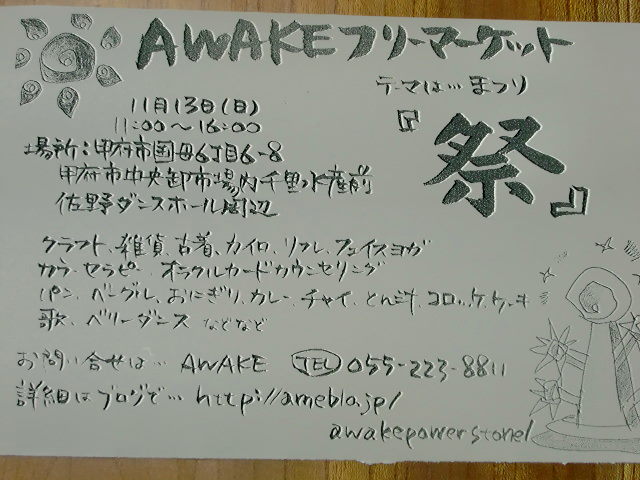 AWAKEフリーマーケット
テーマは…まつり
『祭』
11月13日(日)
11:00〜16:00
場所:甲府市国母6丁目6-8
甲府市中央卸市場内千里水産前
佐野ダンスホール周辺
クラフト、雑貨、古着、カイロ、リフレ、フェイスヨガ
カラーセラピー、オラクルカードカウンセリング
パン、ベーグル、おにぎり、カレー、チャイ、とん汁、コロッケ、ケーキ
歌、ベリーダンス などなど
お問い合せは… AWAKE TEL 055-223-8811
詳細はブログで… http://ameblo.jp/
awakepowerstone/